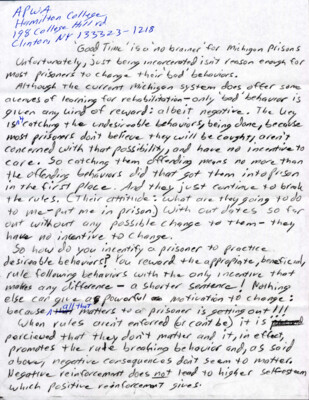 APWA
Hamilton College
198 College Hill rd
Clinton NY 133323-1218
Good Time is a no brainer for Michigan Prisons
Unfortunately, just being incarcerated isn't reason enough for
most prisoners to change their 'bad' behaviors.
Although the current Michigan system does offer some
avenues of learning for rehabilitation - only 'bad' behavior is
given any kind of reward: albeit negative. The key
is catching the undesirable behaviors being done, because
most prisoners don't believe they will be caught, aren't
concerned with that possibility, and have no incentive to
care. So catching them offending means no more than
the offending behaviors did that got them into prison
in the first place. And they just continue to break
the rules. (Their attitude: what are they going to do
to me - put me in prison) With out dates so far
out without any possible change to them - they
have no incentive to change.
So how do you incentify a prisoner to practice
desireable behaviors? You reward the appropiate, beneficial,
rule following behaviors with the only incentive that
makes any difference - a shorter sentence! Nothing
else can give as powerful motivation to change:
because all that matters to a prisoner is getting out!!!
When rules aren't enforced (or can't be) it is
percieved that they don't matter and it, in effect,
promotes the rule breaking behavior and, as said
above, negative consequences don't seem to matter.
Negative reinforcement does not lead to higher selfesteem
which positive reinforcement gives.